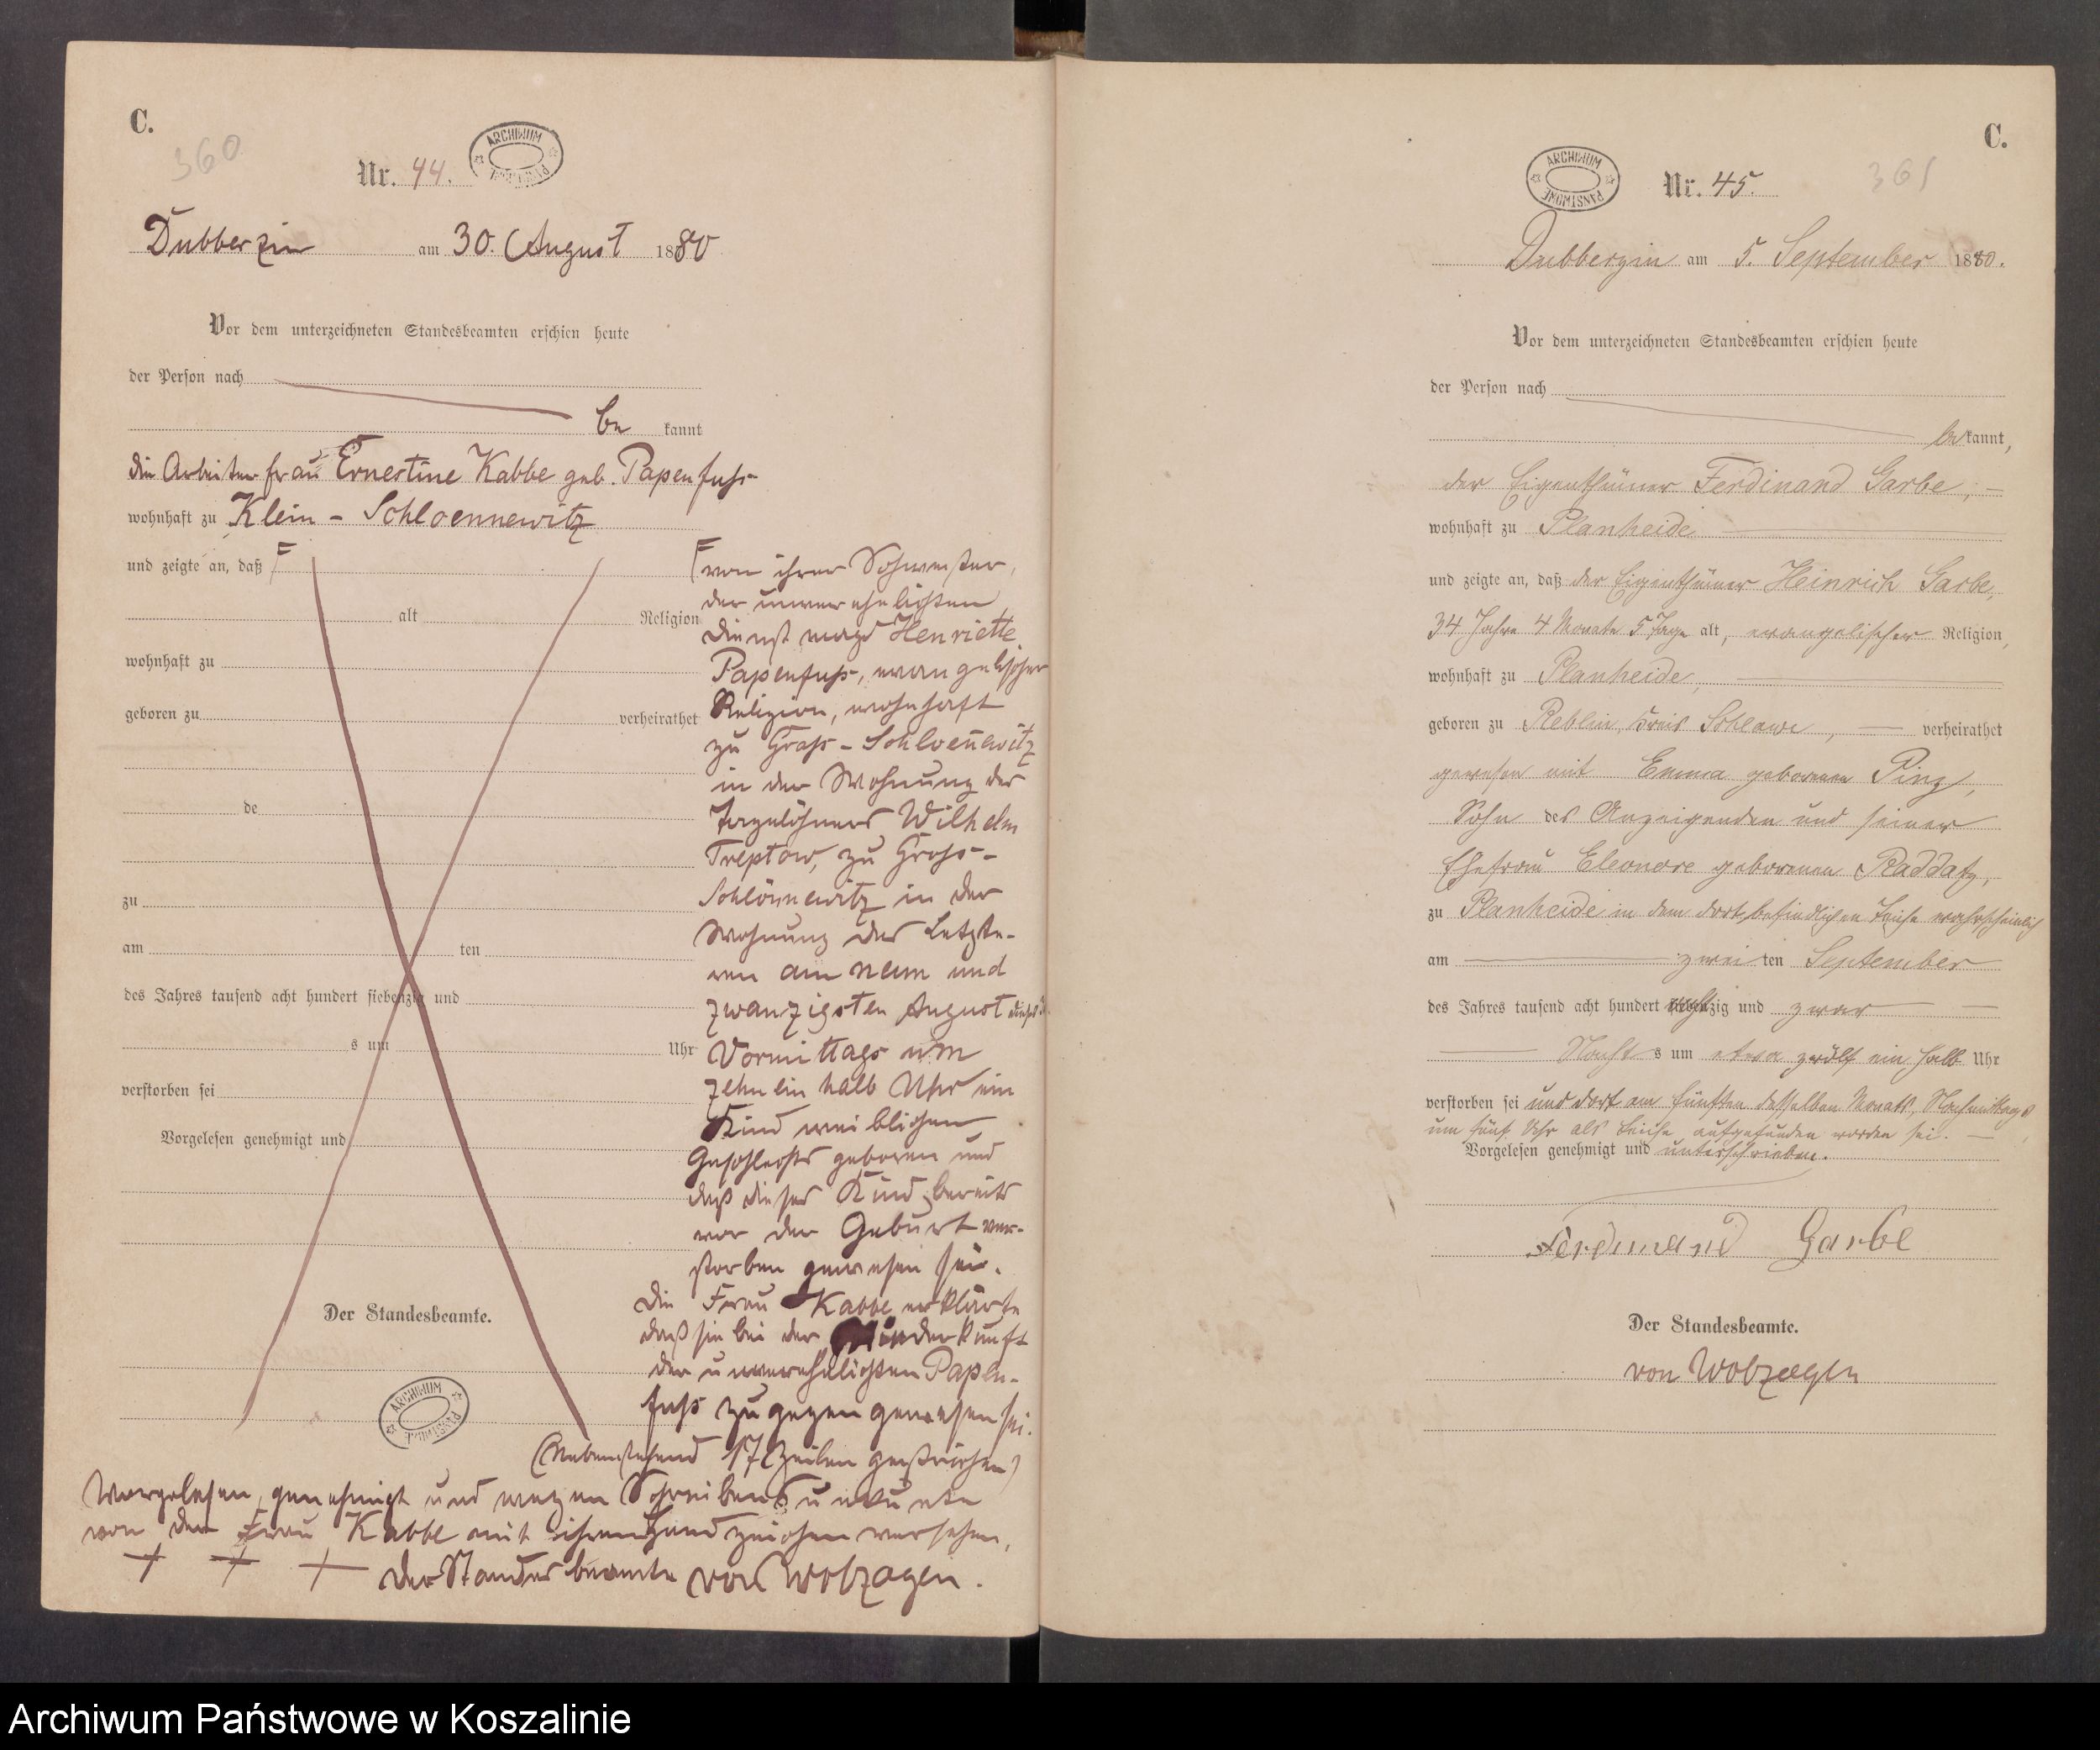 C.
360
Nr. 44.
ARCHIWUM PAŃSTWOWE
Dubberzin am 30. August 1880
Vor dem unterzeichneten Standesbeamten erschien heute
der Person nach
be kannt
die Arbeiterfrau Ernestine Kabbe geb. Papenfuss
wohnhaft zu Klein-Schloennewitz
und zeigte an, daß
alt Religion
wohnhaft zu
geboren zu verheirathet
de
zu
am ten
des Jahres tausend acht hundert siebenzig und
s um Uhr
verstorben sei
Vorgelesen genehmigt und
Der Standesbeamte.
ARCHIWUM PAŃSTWOWE
von ihrer Schwester,
der unverehelichten
Dienstmagd Henriette
Papenfuss, evangelischer
Religion, wohnhaft
zu Gross-Schloen̄ewitz
in der Wohnung des
Tagelöhners Wilhelm
Treptow, zu Gross-
Schlönnewitz in der
Wohnung des Letzte-
ren am neun und
zwanzigsten August dieses
Vormittags um
zehn ein halb Uhr ein
Kind weiblichen
Geschlechts geboren und
daß dieses Kind bereits
vor der Geburt ver-
storben gewesen sei.
Die Frau Kabbe erklärte
daß sie bei der Niederkunft
der unverehelichten Papen-
fuss zugegen gewesen sei.
(Nebenstehend 17 Zeilen gestrichen)
Vorgelesen, genehmigt und wegen Schreibens unkunde
von der Frau Kabbe mit ihrem Handzeichen versehen,
+ + + Der Standesbeamte von Wobzagen.
C.
361
ARCHIWUM PAŃSTWOWE
Nr. 45.
Dubberzin am 5. September 1880.
Vor dem unterzeichneten Standesbeamten erschien heute
der Person nach
be kannt,
der Eigenthümer Ferdinand Garbe,
wohnhaft zu Planheide
und zeigte an, daß der Eigenthümer Heinrich Garbe,
34 Jahre 4 Monate 5 Tage alt, evangelischer Religion,
wohnhaft zu Planheide,
geboren zu Reblin, Kreis Schlawe, verheirathet
gewesen mit Emma geborenen Pinz,
Sohn des Anzeigenden und seiner
Ehefrau Eleonore geborenen Raddatz,
zu Planheide in dem dort befindlichen Teiche wahrscheinlich
am zwei ten September
des Jahres tausend acht hundert achtzig und zwar
Nacht s um etwa zwölf ein halb Uhr
verstorben sei und dort am fünften desselben Monats, Nachmittags
um fünf Uhr als Leiche aufgefunden worden sei.
Vorgelesen genehmigt und unterschrieben.
Ferdinand Garbe
Der Standesbeamte.
von Wobzagen
Archiwum Państwowe w Koszalinie